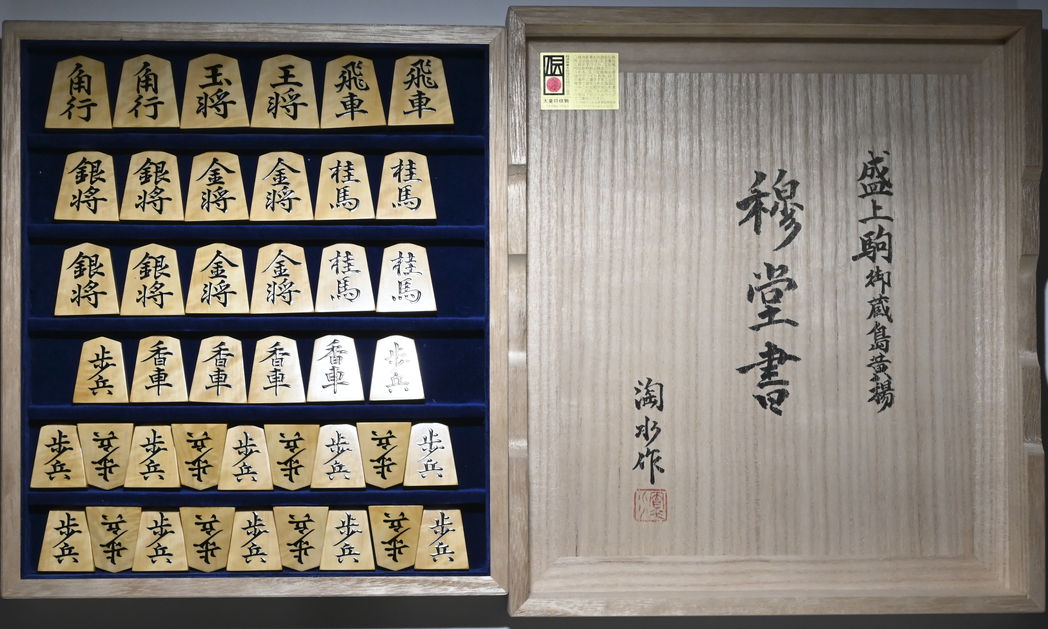 角行 角行 玉将 王将 飛車 飛車
銀将 銀将 金将 金将 桂馬 桂馬
銀将 銀将 金将 金将 桂馬 桂馬
歩兵 香車 香車 香車 香車 歩兵
歩兵 歩兵 歩兵 歩兵 歩兵 歩兵 歩兵 歩兵 歩兵
歩兵 歩兵 歩兵 歩兵 歩兵 歩兵 歩兵 歩兵 歩兵
盛上駒御蔵島黄楊
穆堂書
淘水作
伝
天童将棋駒